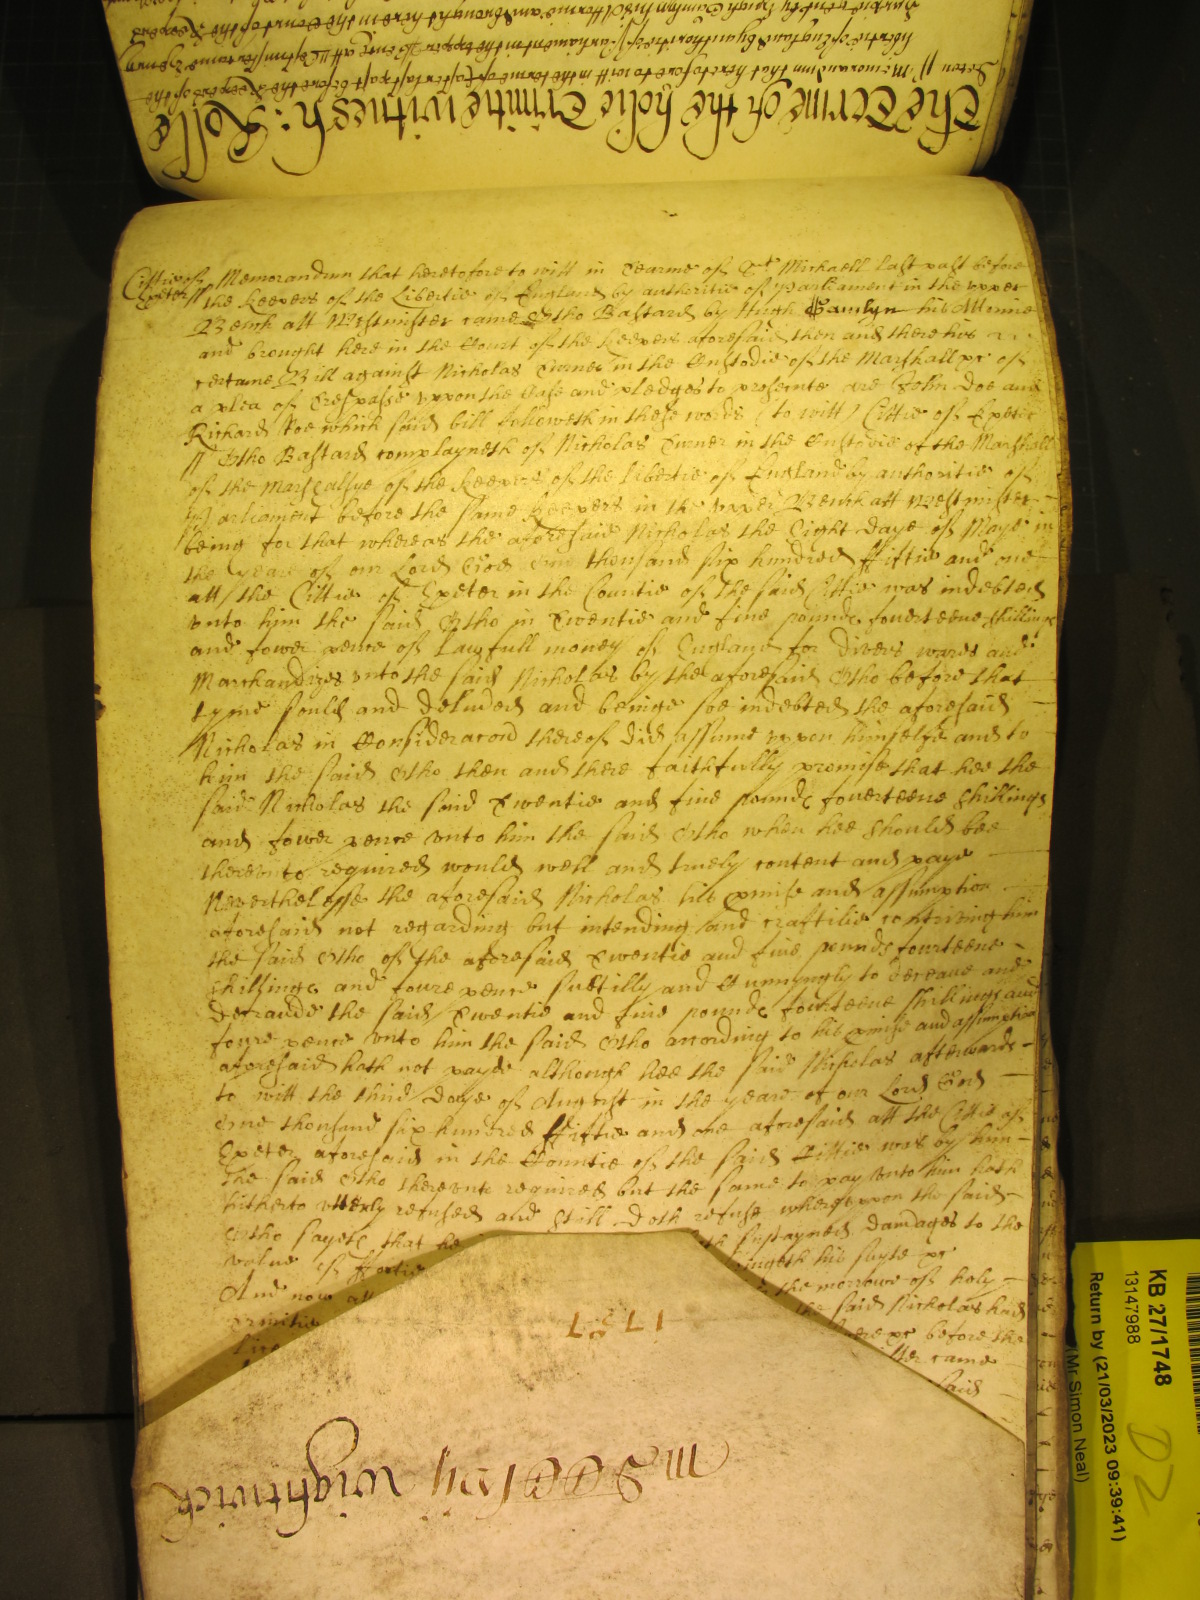 The Terme of the holie Trinitie witnesh: Rolle
Memorandum that heretofore to witt in the terme of Easter last past before the Keepers of the
libertie of England by authoritie of Parliament in the upper Bench att Westminster came
Cittie of Exeter // Memorandum that heretofore to witt in Tearme of St Michaell last past before
the Keepers of the Libertie of England by authoritie of Parliament in the upper
Bench att Westminster came Otho Bastard by Hugh Gamlyn his Attornie
and brought here in the Court of the Keepers aforesaid then and there his
certaine Bill against Nicholas Turner in the Custodie of the Marshall &c of
a plea of Trespasse uppon the Case and pledges to prosecute are John Doe and
Richard Roe which said bill followeth in these words (to witt) Cittie of Exeter
// Otho Bastard complayneth of Nicholas Turner in the Custodie of the Marshall
of the Marshalsye of the Keepers of the libertie of England by authoritie of
Parliament before the same Keepers in the upper Bench att Westminster
being for that whereas the aforesaid Nicholas the Eight daye of Maye in
the yeare of our Lord God one thousand six hundred ffiftie and one
att the Cittie of Exeter in the Countie of the said Cittie was indebted
unto him the said Otho in Twentie and five pounds fowerteene shillings
and fower pence of lawfull money of England for divers wares and
Marchandizes unto the said Nicholas by the aforesaid Otho before that
tyme sould and deliuered and beinge soe indebted the aforesaid
Nicholas in Consideracon thereof did assume uppon himselfe and to
him the said Otho then and there faithfully promise that hee the
said Nicholas the said Twentie and five pounds fowerteene shillings
and fower pence unto him the said Otho when hee should bee
thereunto required would well and truely content and paye
Neverthelesse the aforesaid Nicholas his pmise and assumption
aforesaid not regarding but intending and craftilie contriving him
the said Otho of the aforesaid Twentie and five pounds fourteene
shillings and foure pence subtilly and Cunnyngly to deceave and
defraude the said Twentie and five pounds fourteene shillings and
foure pence unto him the said Otho according to his pmise and assumption
aforesaid hath not payde although hee the said Nicholas afterwards
to witt the third daye of August in the yeare of our Lord God
one thousand six hundred ffiftie and one aforesaid att the Cittie of
Exeter aforesaid in the Countie of the said Cittie was by him
the said Otho thereunto required but the same to pay unto him hath
hitherto utterly refused and still doth refuse whereuppon the said
Otho sayeth that he sustayned damages to the
value of ffortie his suyte &c
And now att the morrowe of holy
Trinitie the said Nicholas had
before the
came
said
1751
Wightwick
KB 27/1748
13147988
Return by (21/03/2023 09:39:41)
(Mr Simon Neal)
D2